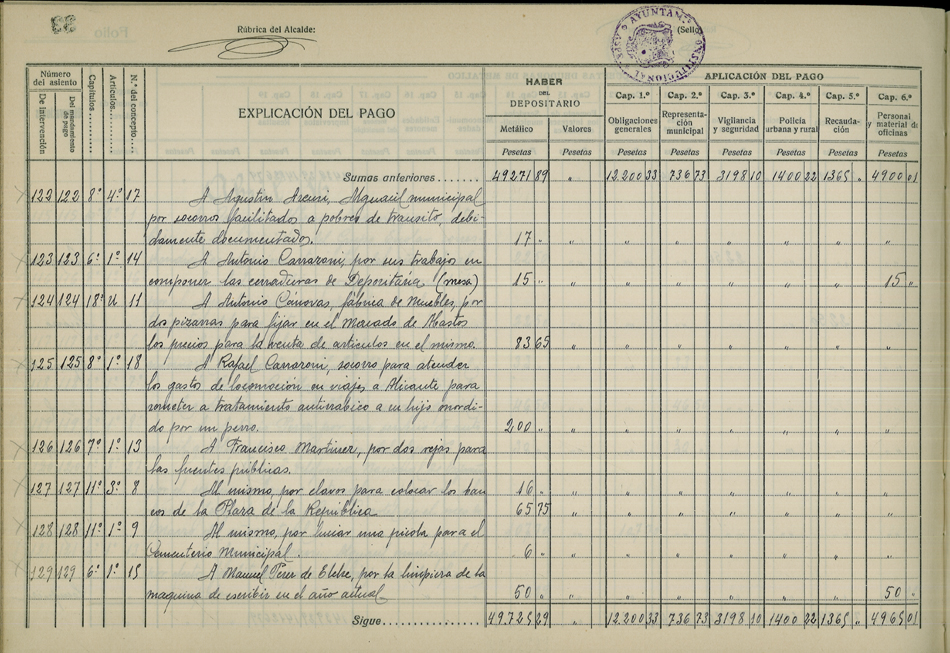 33
Folio
Rúbrica del Alcalde:
(Sello)
AYUNTAM CONSTITUCIONAL ASPE
Número del asiento
De intervención
Del mandamiento de pago
Capítulos
Artículos
N.º del concepto
EXPLICACIÓN DEL PAGO
HABER DEL DEPOSITARIO
Metálico Valores
Pesetas Pesetas
APLICACIÓN DEL PAGO
Cap. 1.º Cap. 2.º Cap. 3.º Cap. 4.º Cap. 5.º Cap. 6.º
Obligaciones generales
Representación municipal
Vigilancia y seguridad
Policía urbana y rural
Recaudación
Personal y material de oficinas
Pesetas Pesetas Pesetas Pesetas Pesetas Pesetas
Sumas anteriores....... 49271 89 " 12.200 33 736 73 3198 10 1400 22 1365 " 4900 01
122 122 8º 4º 17 A Agustin Asensi, Alguacil municipal
por socorros facilitados a pobres de transito, debi-
damente documentados. 17 " " " " " " " "
123 123 6º 1º 14 A Antonio Carraroni, por sus trabajos en
componer las cerraduras de Depositaria (mesa) 15 " " " " " " " 15 "
124 124 18º u 11 A Antonio Cánovas, fábrica de Muebles, por
dos pizarras para fijar en el Mercado de Abastos
los precios para la venta de articulos en el mismo. 83 65 " " " " " " "
125 125 8º 1º 18 A Rafael Carraroni, socorro para atender
los gastos de locomoción en viajes a Alicante para
someter a tratamiento antirrabico a un hijo mordi-
do por un perro. 200 " " " " " " " "
126 126 7º 1º 13 A Francisco Martinez, por dos rejas para
las fuentes públicas.
127 127 11º 3º 8 Al mismo, por clavos para colocar los ban 16 " " " " " " " "
cos de la Plaza de la República 65 75 " " " " " " "
128 128 11º 1º 9 Al mismo, por luciar una picola para el
Cementerio Municipal. 6 " " " " " " " "
129 129 6º 1º 15 A Manuel Perez de Elche, por la limpieza de la
maquina de escribir en el año actual 50 " " " " " " " 50 "
Sigue............... 49.725 29 12.200 33 736 73 3198 10 1400 22 1365 " 4965 01